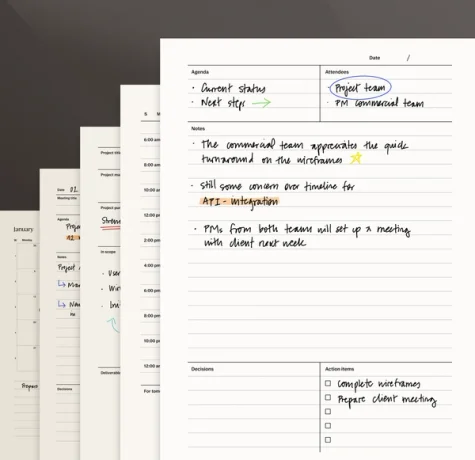 January
Monday
Prepare
Date 02.
Meeting title
Agenda
Proje
Notes
Project
↳ Man
↳ Nan
No
Decisions
Project title
Project man
Project pur
Strea
In-scope
· User
· Wir
· Ini
Deliverable
S M
6:00 am
8:00 am
10:00 am
12:00 pm
2:00 pm
4:00 pm
6:00 pm
8:00 pm
10:00 pm
12:00 am
For tom
Date /
Agenda
· Current status
· Next steps →
Attendees
· Project team
· PM commercial team
Notes
· The commercial team appreciates the quick
turnaround on the wireframes
· Still some concern over timeline for
API - Integration
· PMs from both teams will set up a meeting
with client next week
Decisions
Action items
Complete wireframes
Prepare client meeting